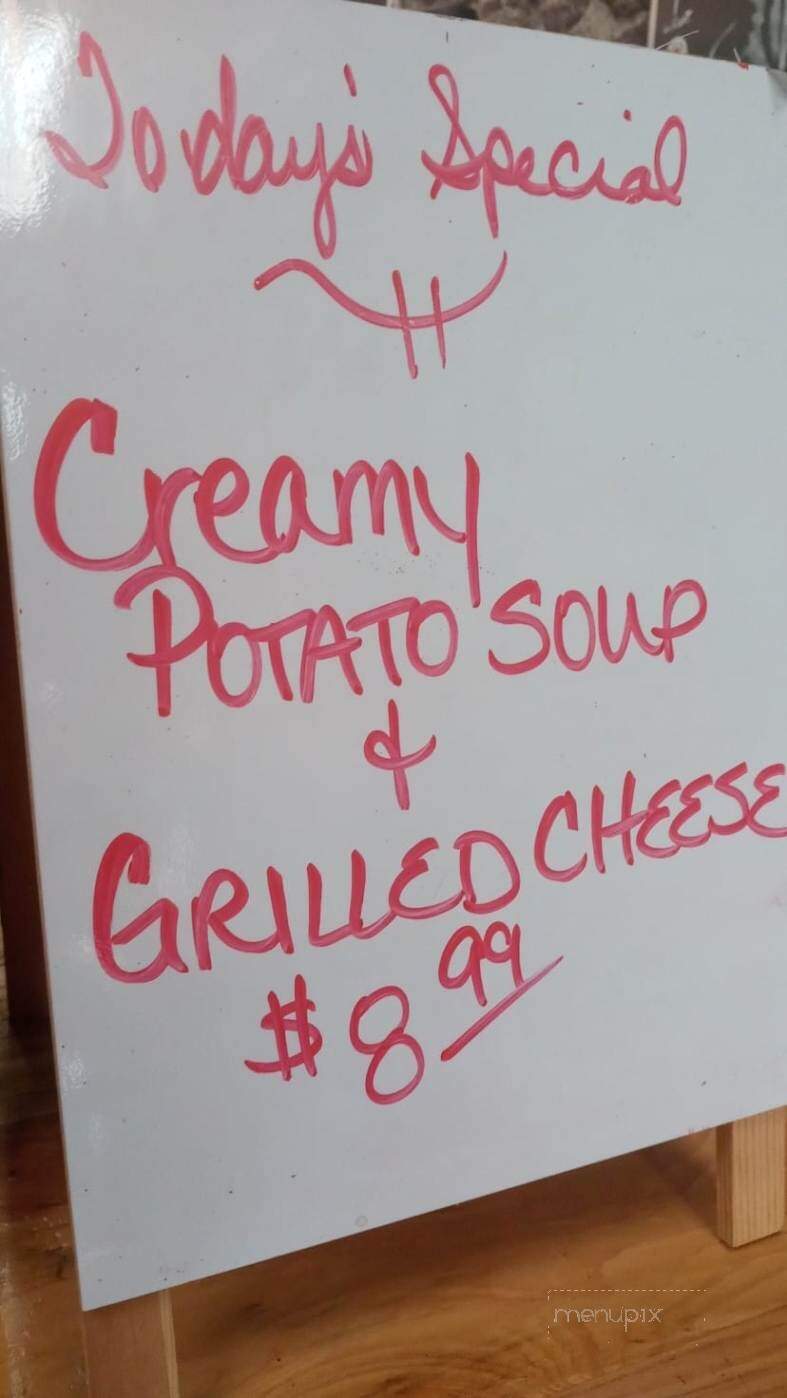 Today's Special
Creamy
POTATO SOUP
&
GRILLED CHEESE
$8.99
menupix